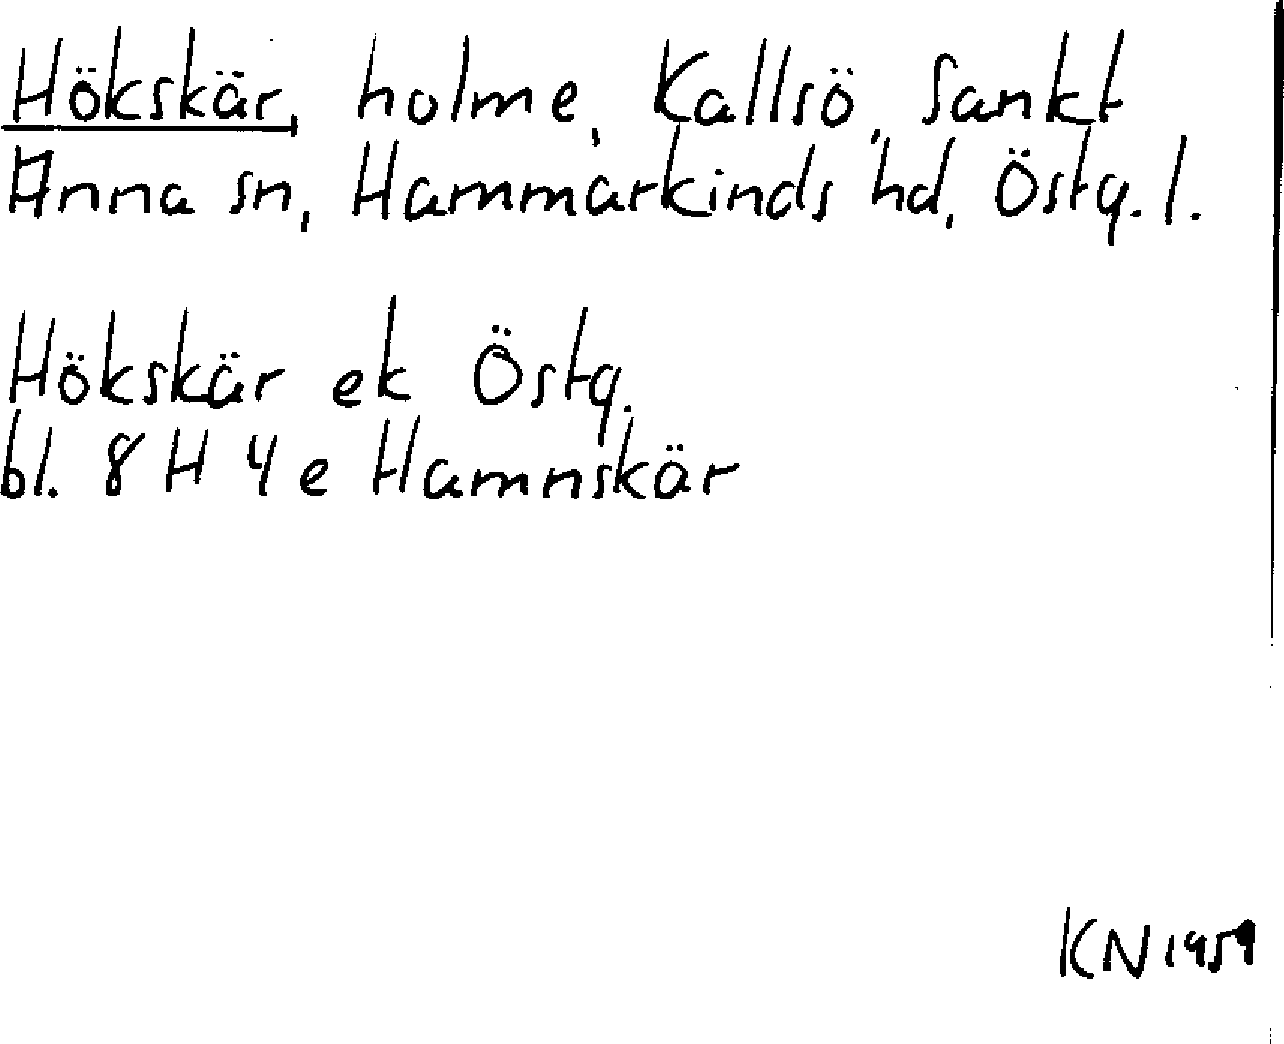 Hökskär, holme, Kallsö, Sankt
Anna sn, Hammarkinds hd, Östg. l.
Hökskär ek Östg.
bl. 8 H 4 e Hamnskär
KN 1959